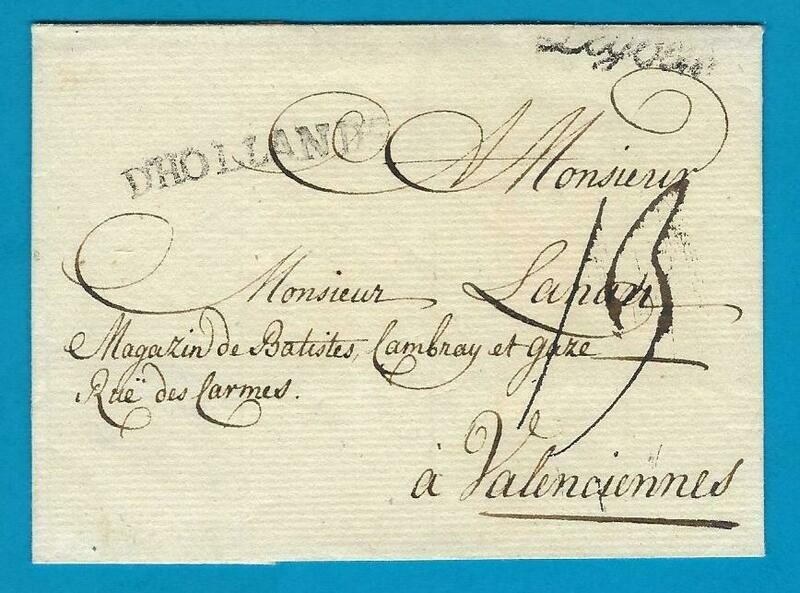 D'HOLLANDE
Monsieur
Monsieur Lanau
Magazin de Batistes, Cambray et gaze
Ruë des Carmes.
13
à Valenciennes